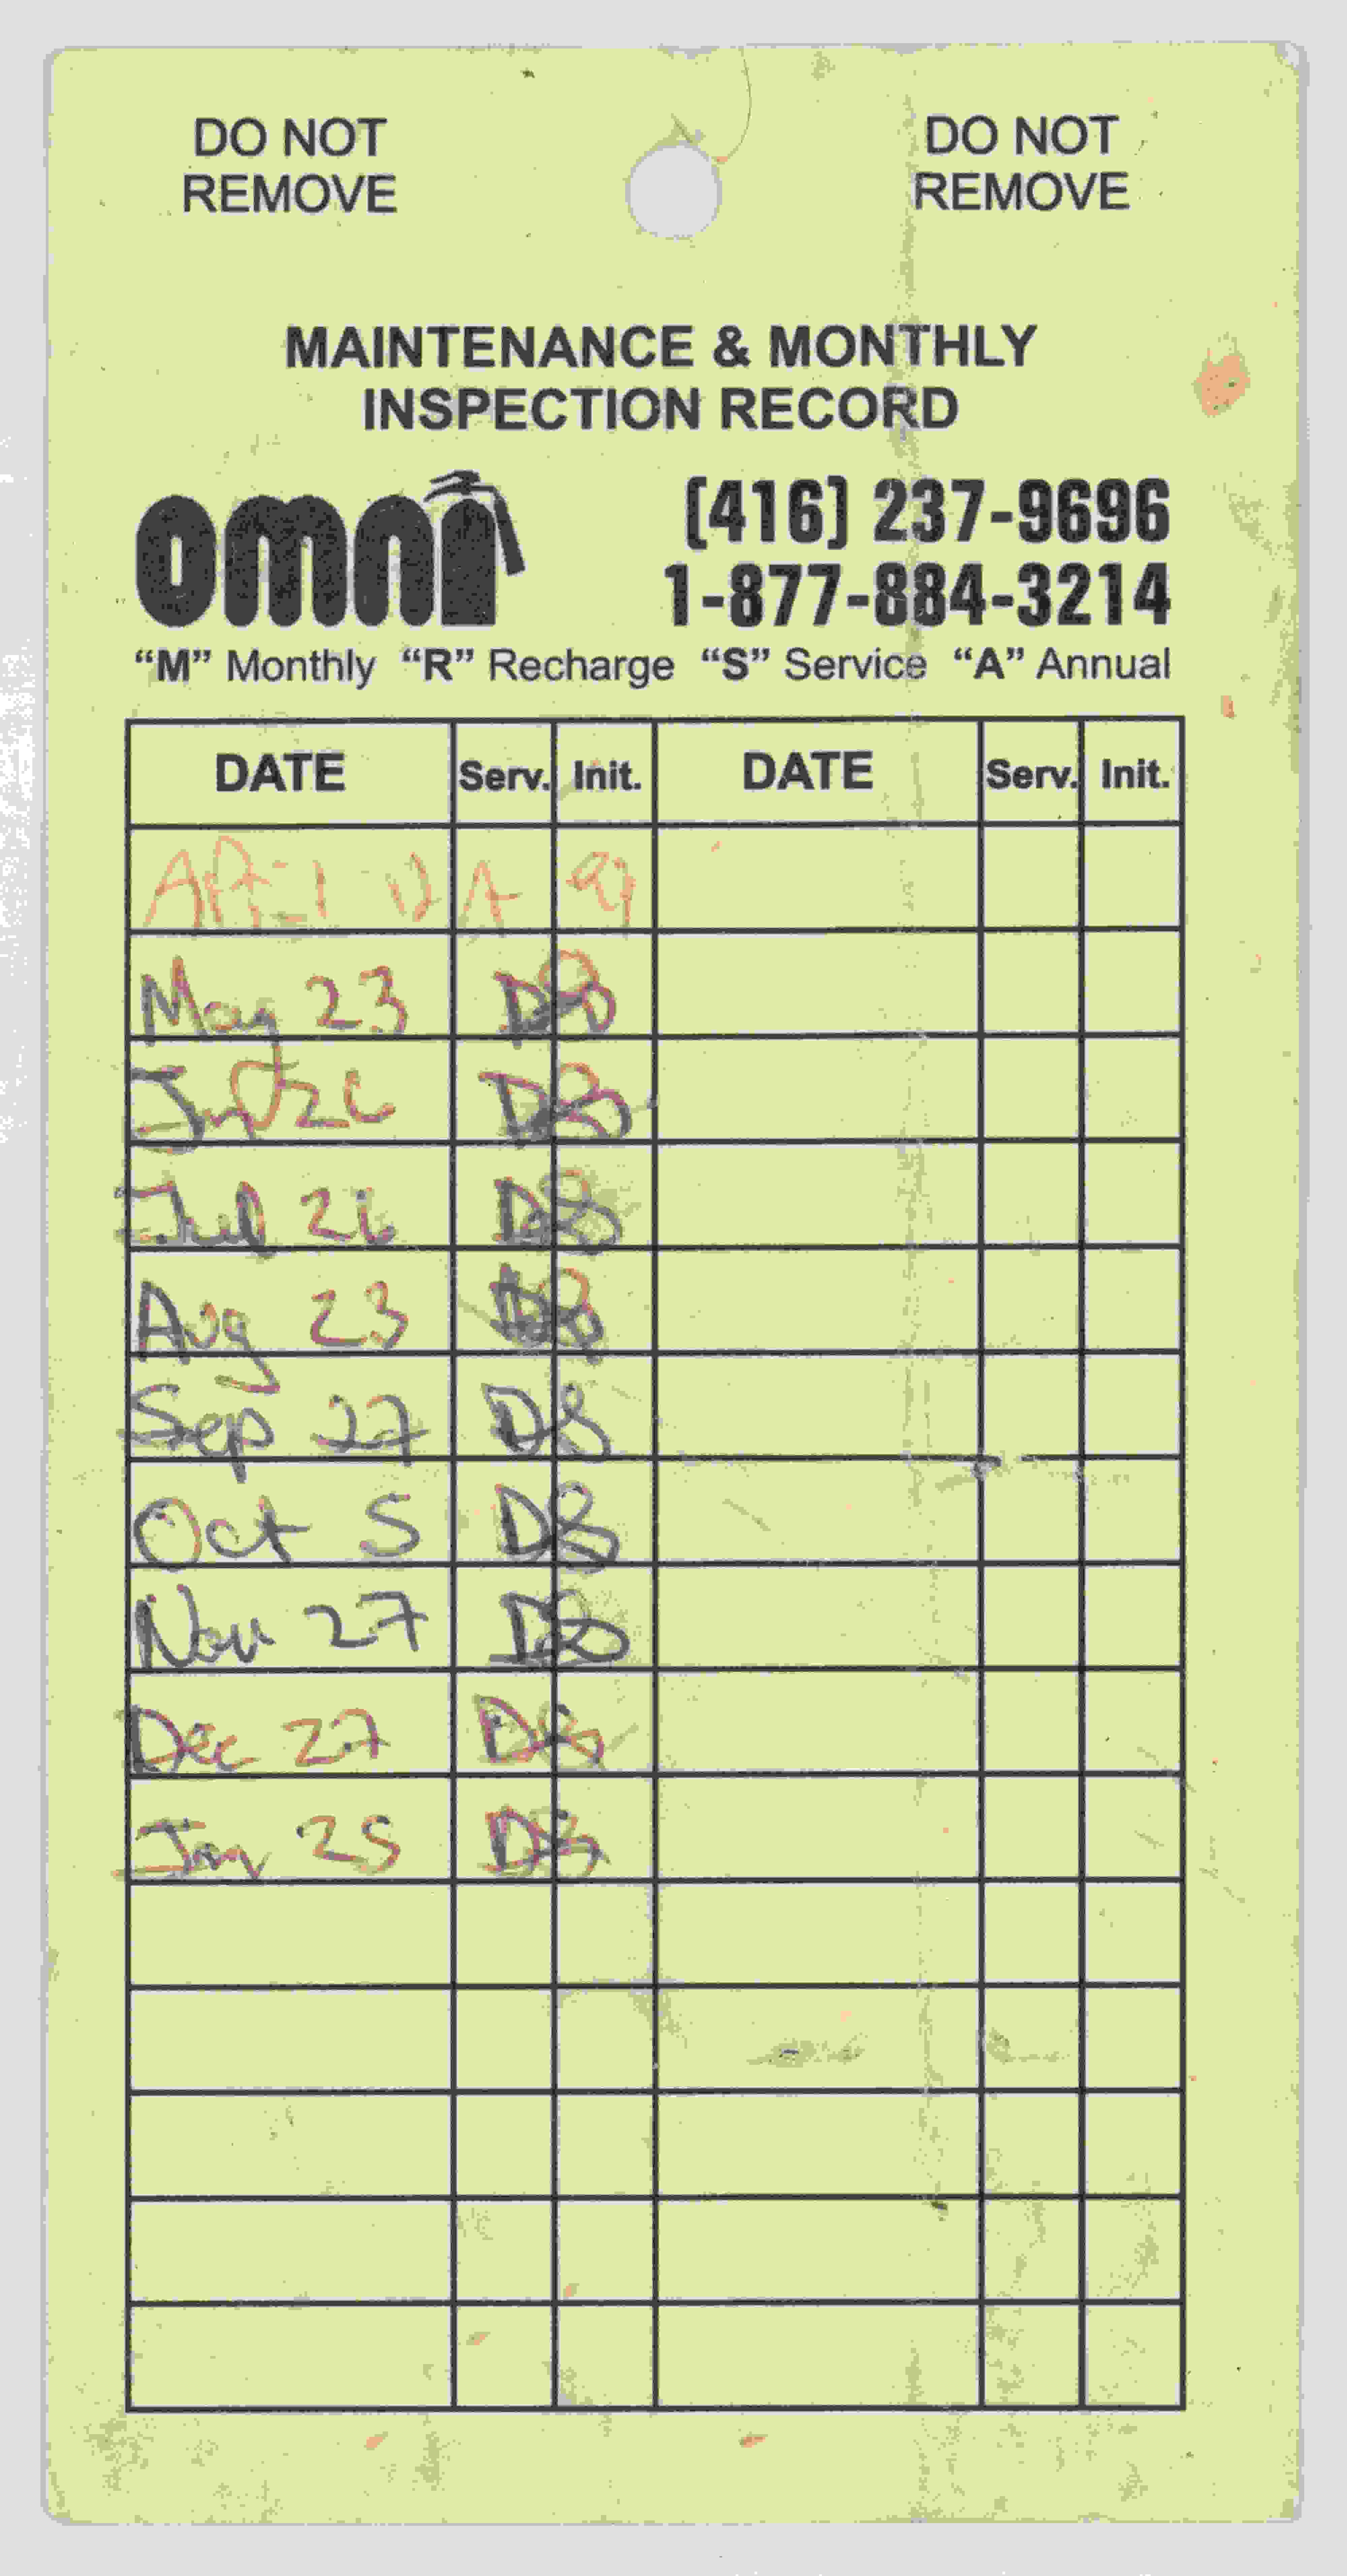 DO NOT REMOVE
DO NOT REMOVE
MAINTENANCE & MONTHLY
INSPECTION RECORD
omni
(416) 237-9696
1-877-884-3214
"M" Monthly "R" Recharge "S" Service "A" Annual
DATE Serv. Init. DATE Serv. Init.
A
May 23 DB
26 DB
Jul 26 DB
Aug 23 DB
Sep 27 DB
Oct 5 DB
Nov 27 DB
Dec 27 DB
Jan 25 DB